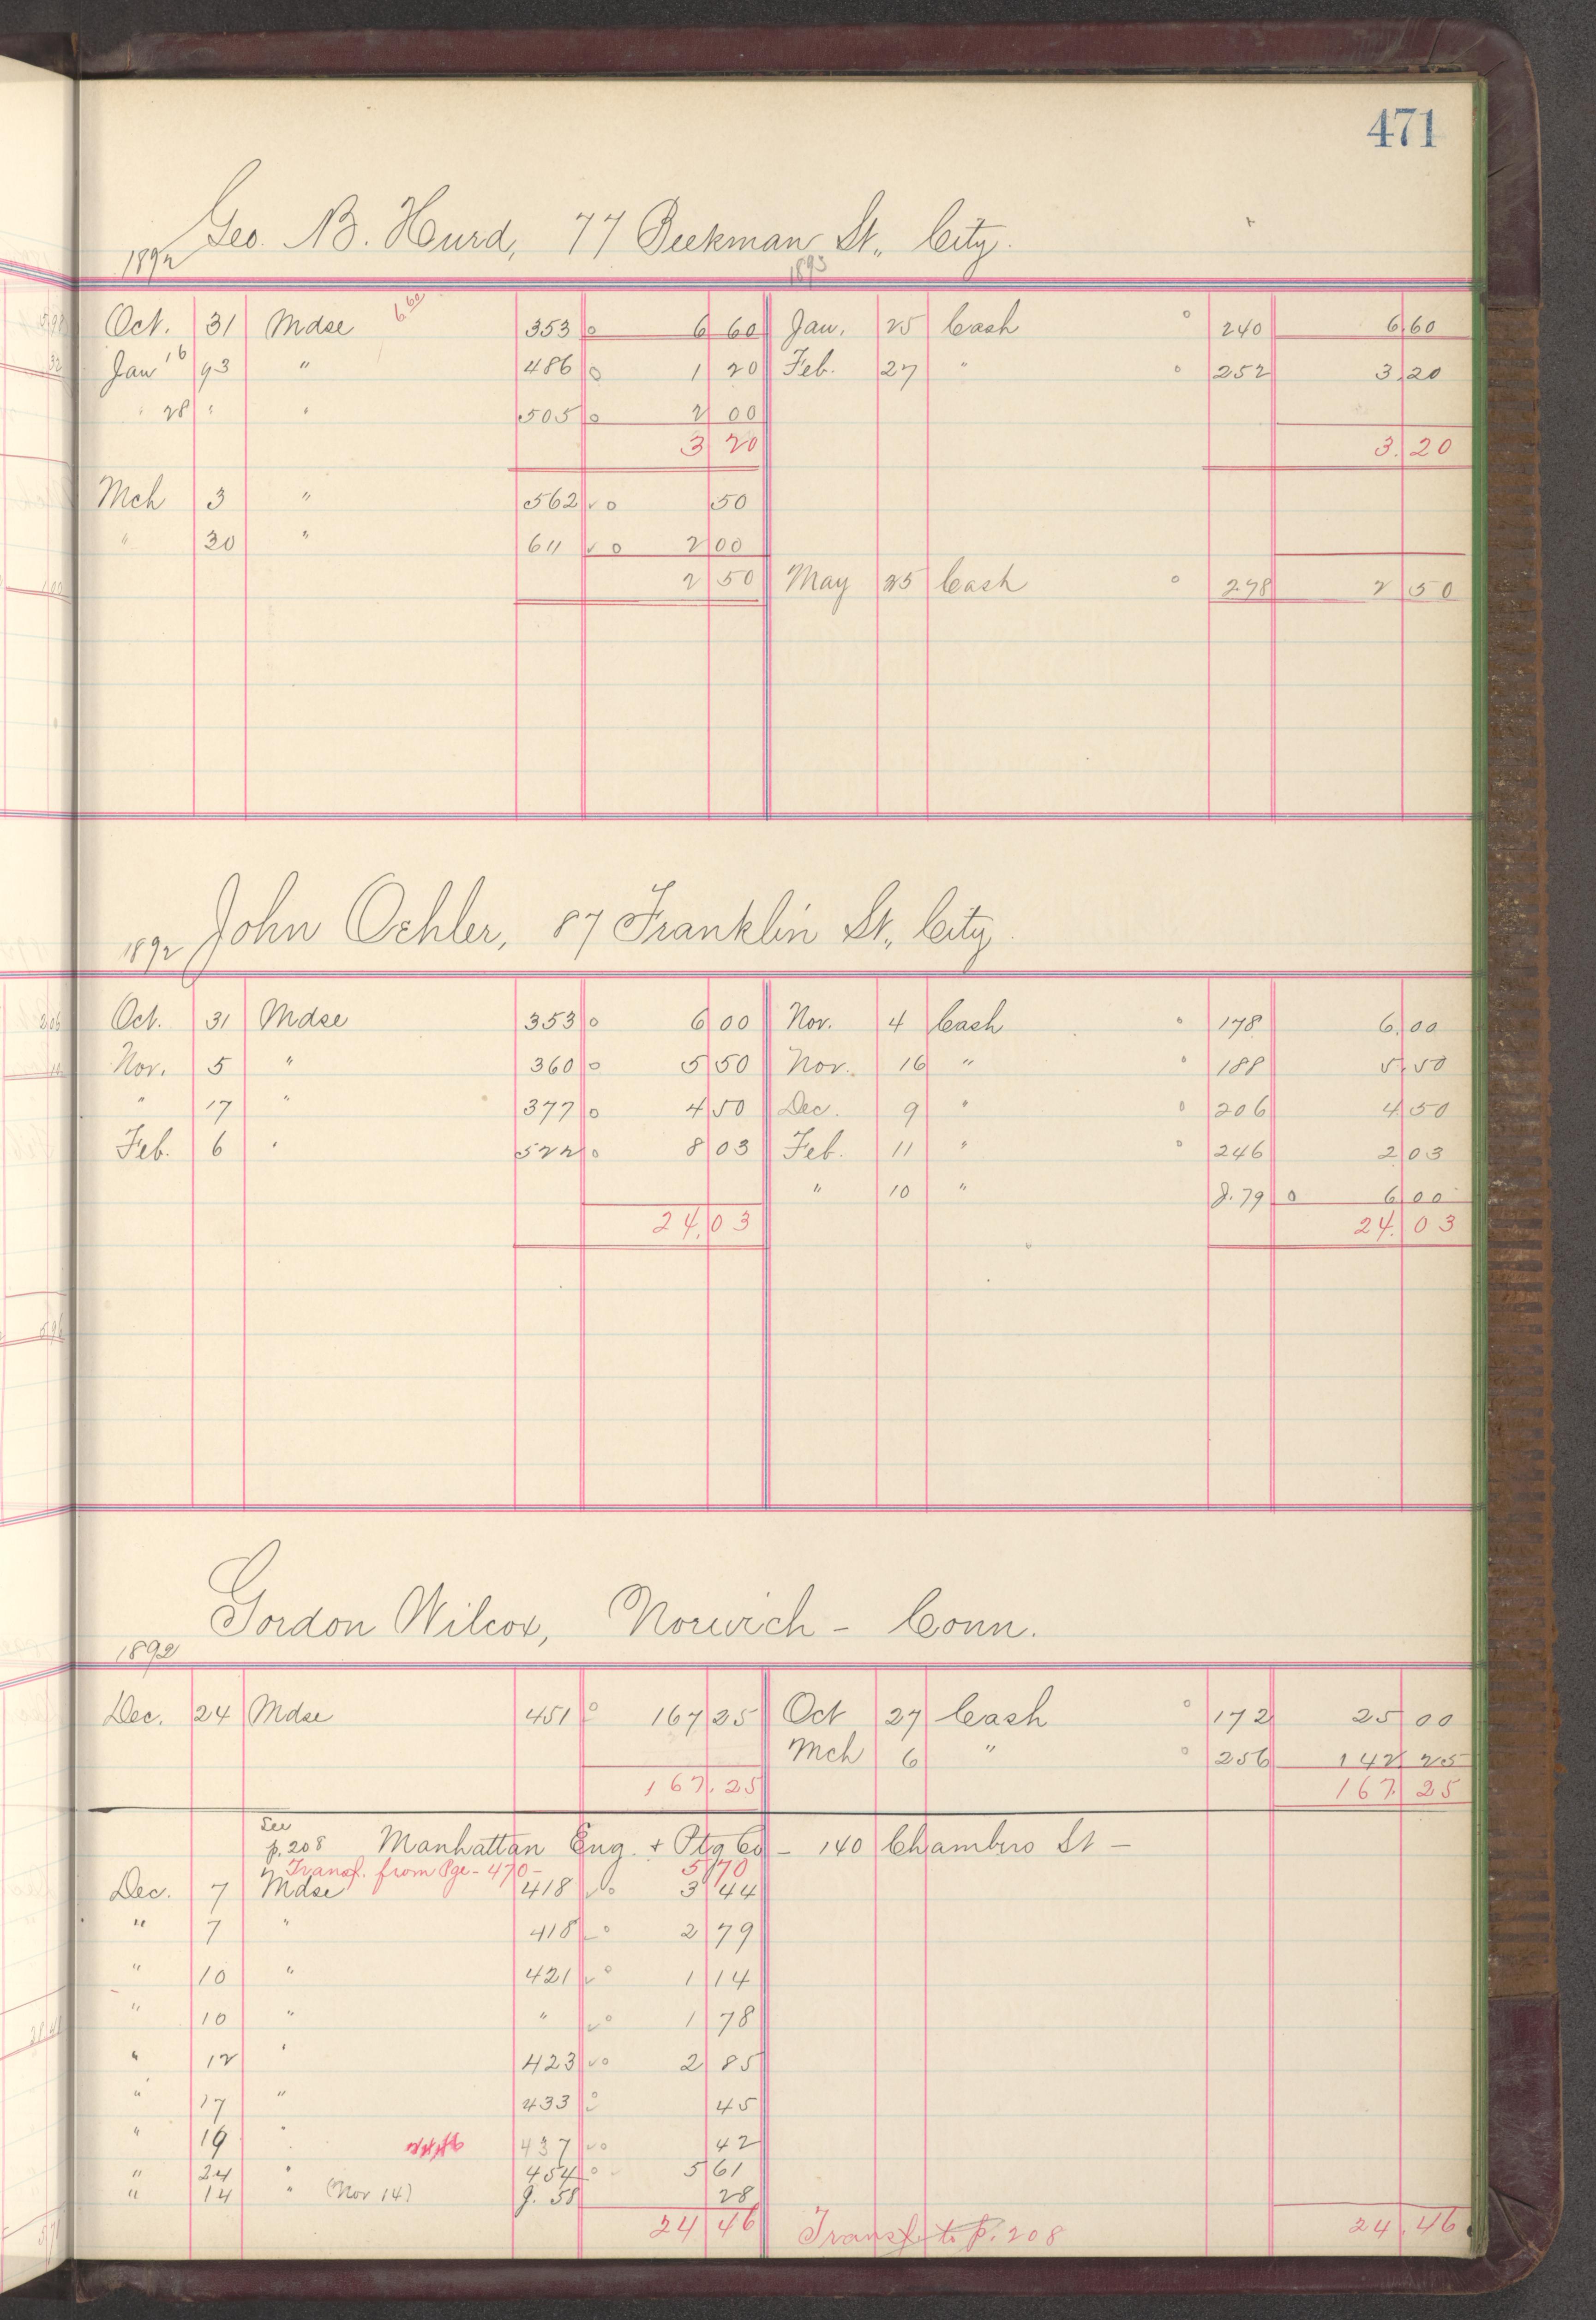 471
Geo. B. Hurd, 77 Beekman St., City.
1892 1893
6.60
Oct. 31 Mdse 353 o 6 60 Jan. 25 Cash o 240 6.60
Jan 16 93 " 486 o 1 20 Feb. 27 " o 252 3.20
" 28 " " 505 o 2 00
3 20 3.20
Mch 3 " 562 ✓ o 50
" 30 " 611 ✓ o 2 00
2 50 May 25 Cash o 278 2 50
John Oehler, 87 Franklin St., City.
1892
Oct. 31 Mdse 353 o 6 00 Nov. 4 Cash o 178 6.00
Nov. 5 " 360 o 5 50 Nov. 16 " o 188 5.50
" 17 " 377 o 4 50 Dec. 9 " o 206 4 50
Feb. 6 " 522 o 8 03 Feb. 11 " o 246 2 03
" 10 " J. 79 o 6 00
24.03 24.03
Gordon Wilcox, Norwich - Conn.
1892
Dec. 24 Mdse 451 o 167 25 Oct 27 Cash o 172 25 00
Mch 6 " o 256 142 25
167.25 167.25
See
p. 208 Manhattan Eng. + Ptg Co - 140 Chambers St -
" Transf. from Pge - 470 - 5 70
Dec. 7 Mdse 418 ✓ o 3 44
" 7 " 418 ✓ o 2 79
" 10 " 421 ✓ o 1 14
" 10 " " ✓ o 1 78
" 12 " 423 ✓ o 2 85
" 17 " 433 o 45
" 19 " 437 ✓ o 42
" 24 " 454 o 5 61
" 14 " (Nov 14) J. 58 28
24 46 Transf. to p. 208 24.46